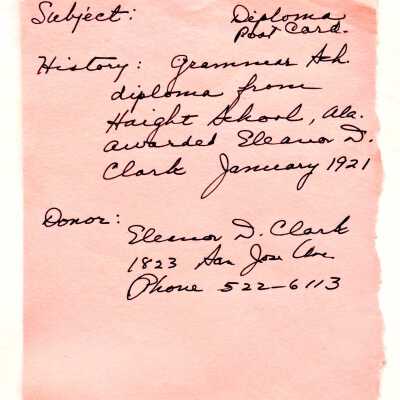 Subject: Diploma
Post Card.
History: Grammar Sch.
diploma from
Haight School, Ala.
awarded Eleanor D.
Clark January 1921
Donor:
Eleanor D. Clark
1823 San Jose Ave
Phone 522-6113